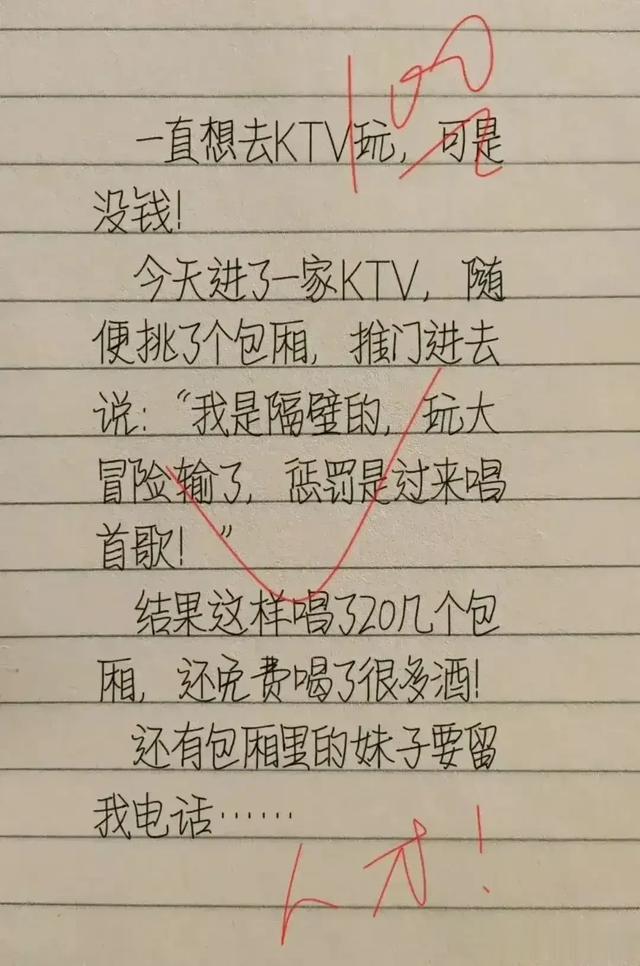 100
一直想去KTV玩，可是
没钱！
今天进了一家KTV，随
便挑了个包厢，推门进去
说：“我是隔壁的，玩大
冒险输了，惩罚是过来唱
首歌！”
结果这样唱了20几个包
厢，还免费喝了很多酒！
还有包厢里的妹子要留
我电话……
人才！